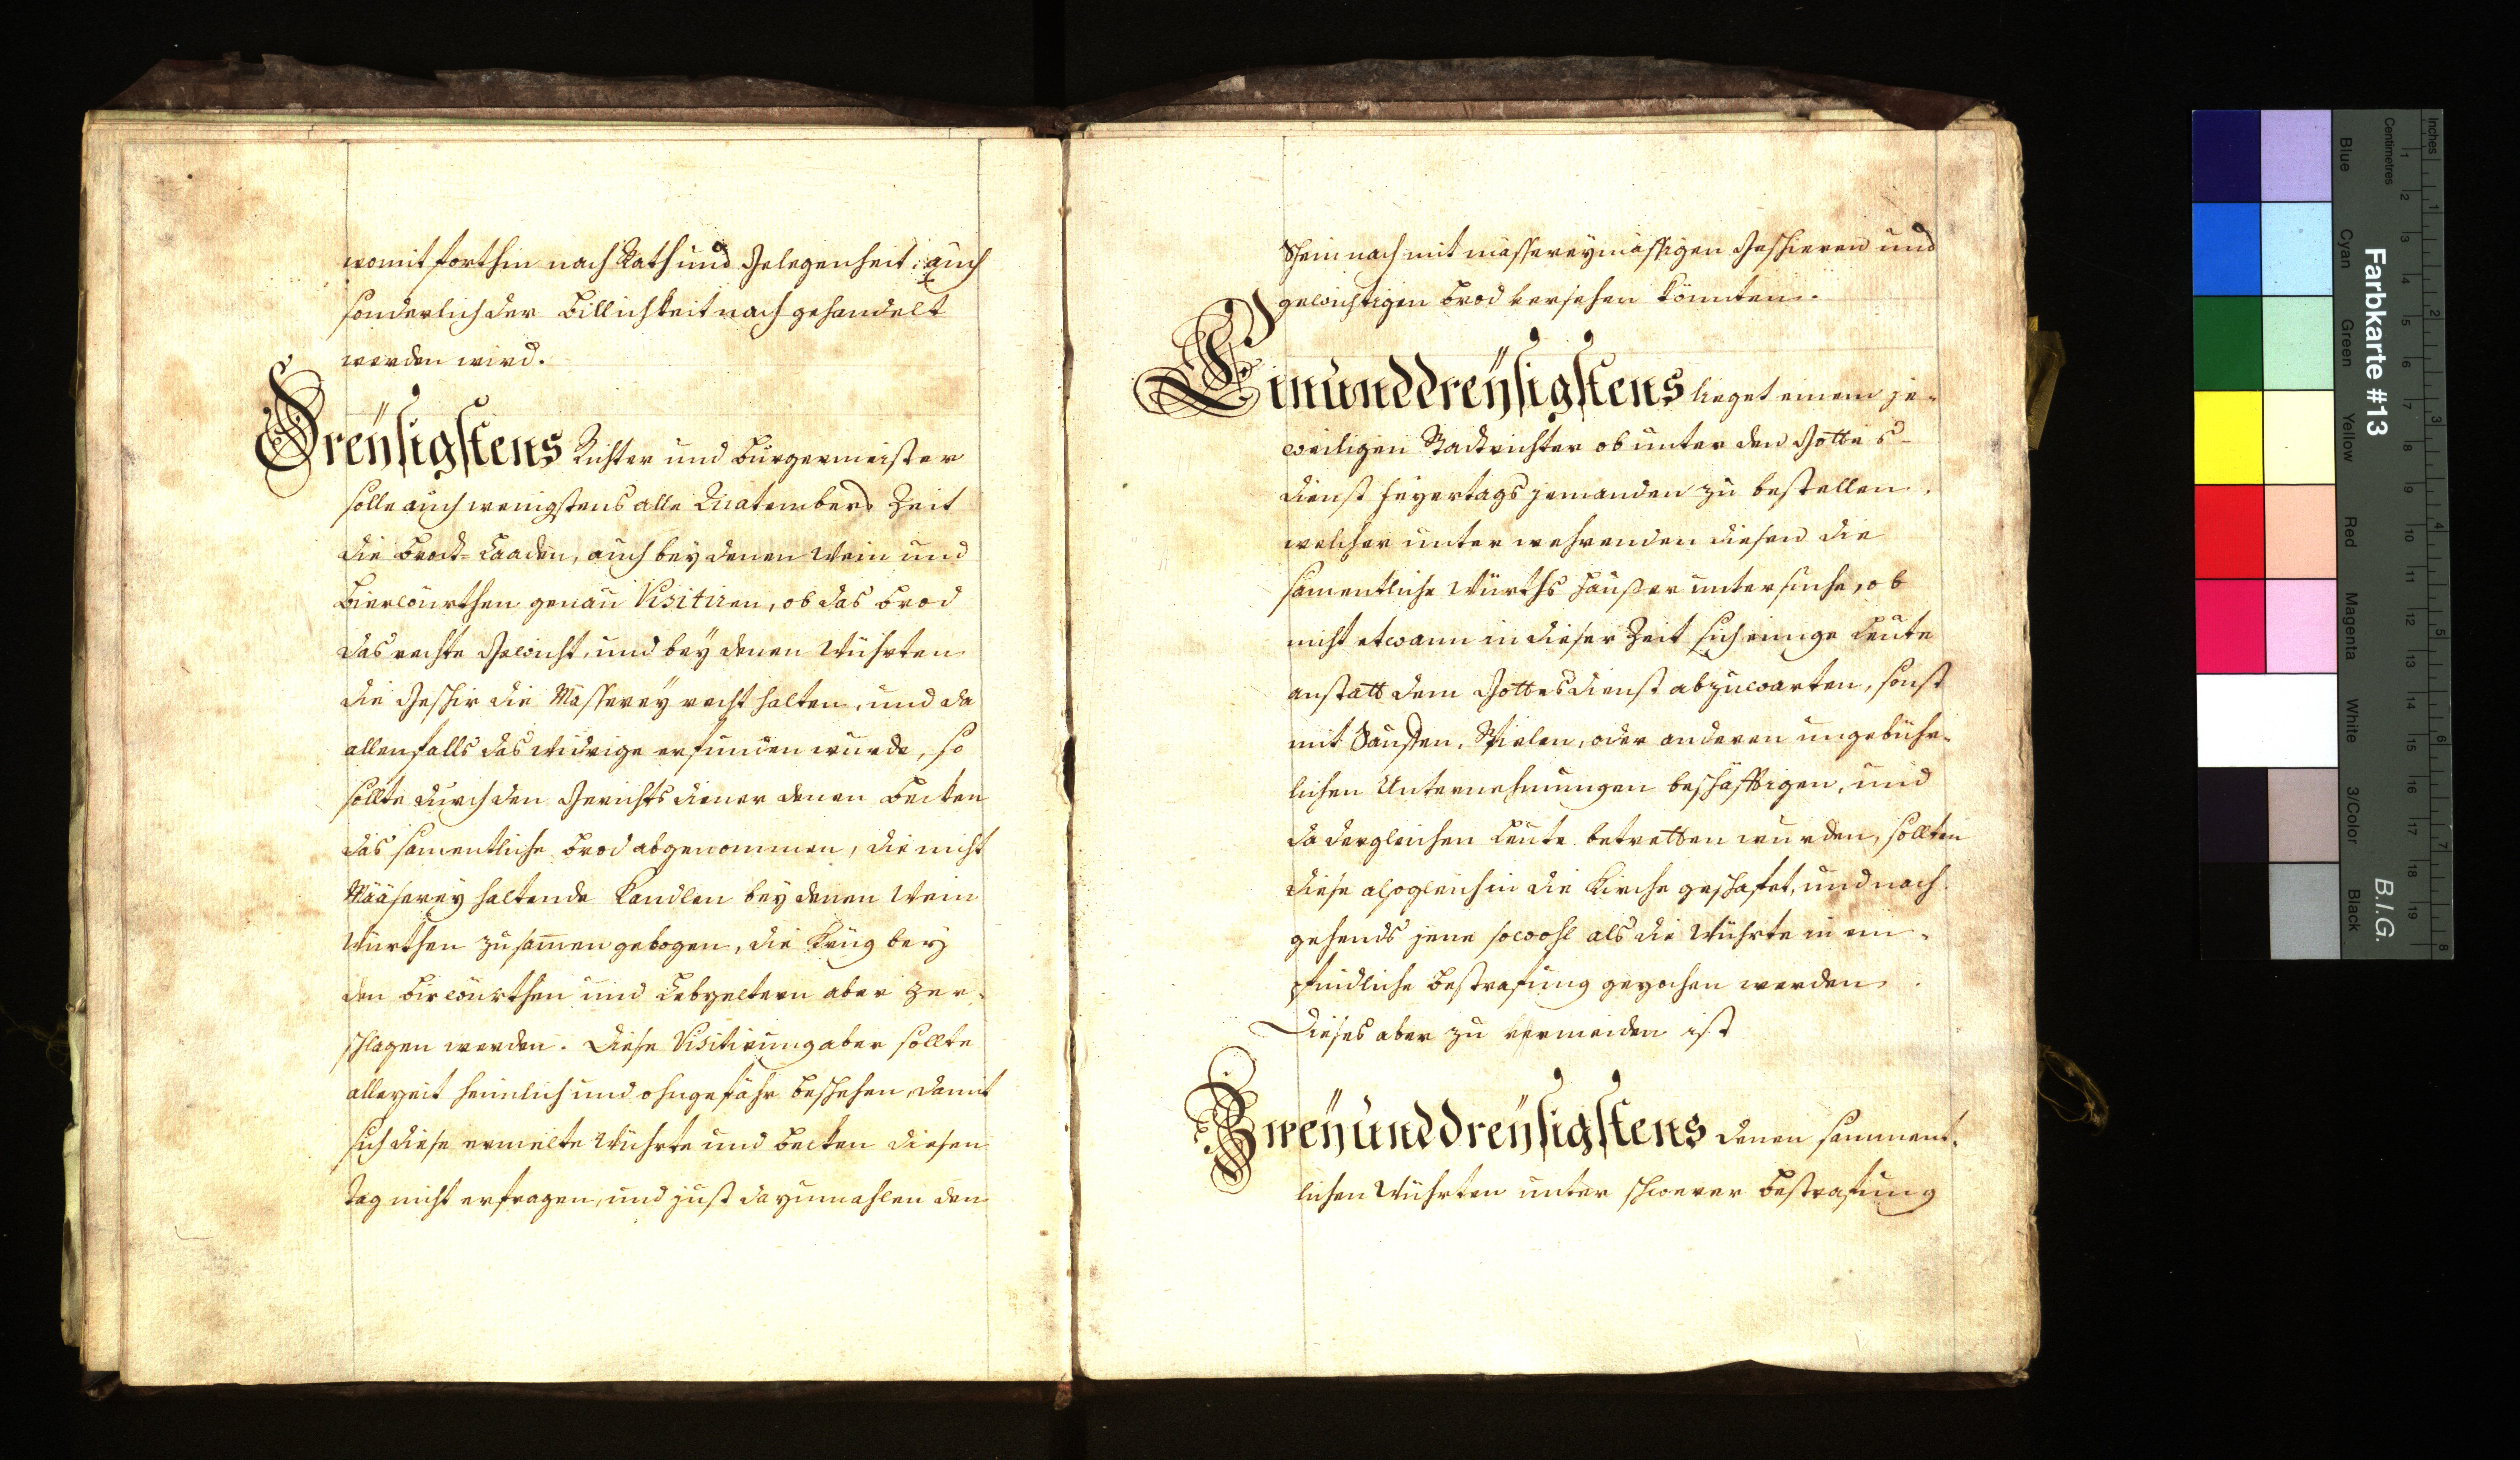 womit forthin nach Rath und Gelegenheit, auch
sonderlich der Billichkeit nach gehandelt
werden wird.
Dreÿsigstens Richter und Burgermeister
solle auch wenigstens alle Quatembers Zeit
die Brodt-Laaden, auch beÿ denen Wein und
Bierwürthen genau Visitiren, ob das Brod
das rechte Gewicht, und beÿ denen Würthen
die Geschir die Massereÿ recht halten, und da
allenfalls das widrige erfunden wurde, so
sollte durch den Gerichts diener denen Becken
das samentliche Brod abgenommen, die nicht
Määsereÿ haltende Kandlen beÿ denen Wein
Würthen zusamen gebogen, die Krüg beÿ
den Bierwürthen und Lebzeltern aber zer-
schlagen werden. Diese Visitirung aber sollte
allezeit heimlich und ohngefähr beschehen, damit
sich diese ermelte Würthe und Becken diesen
Tag nicht erfragen, und just dazumahlen den
Schein nach mit massereÿmässigen Geschieren und
gewichtigen Brod versehen könnten.
Einunddreÿsigstens lieget einem je-
weiligen Stadtrichter ob unter den Gottes-
dienst Feÿertags jemanden zu bestellen,
welcher unter wehrenden diesen die
samentliche Würths Häußer untersuche, ob
nicht etwann in dieser Zeit sich einige Leute
anstatt dem Gottesdienst abzuwarten, sonst
mit Sauffen, Spielen, oder anderen ungebühr-
lichen Unternehmungen beschäfftigen, und
da dergleichen Leute betretten wurden, sollten
diese alsogleich in die Kirche geschafet, und nach-
gehends jene sowohl als die Würthe in em-
pfindliche Bestrafung gezochen werden.
Dieses aber zu vermeiden ist
Zweÿunddreÿsigstens denen samment-
lichen Würthen unter schwerer Bestrafung
Farbkarte #13
B.I.G.
Inches
Centimetres
1 2 3 4 5 6 7 8 9 10 11 12 13 14 15 16 17 18 19
1 2 3 4 5 6 7 8
Blue
Cyan
Green
Yellow
Red
Magenta
White
3/Color
Black